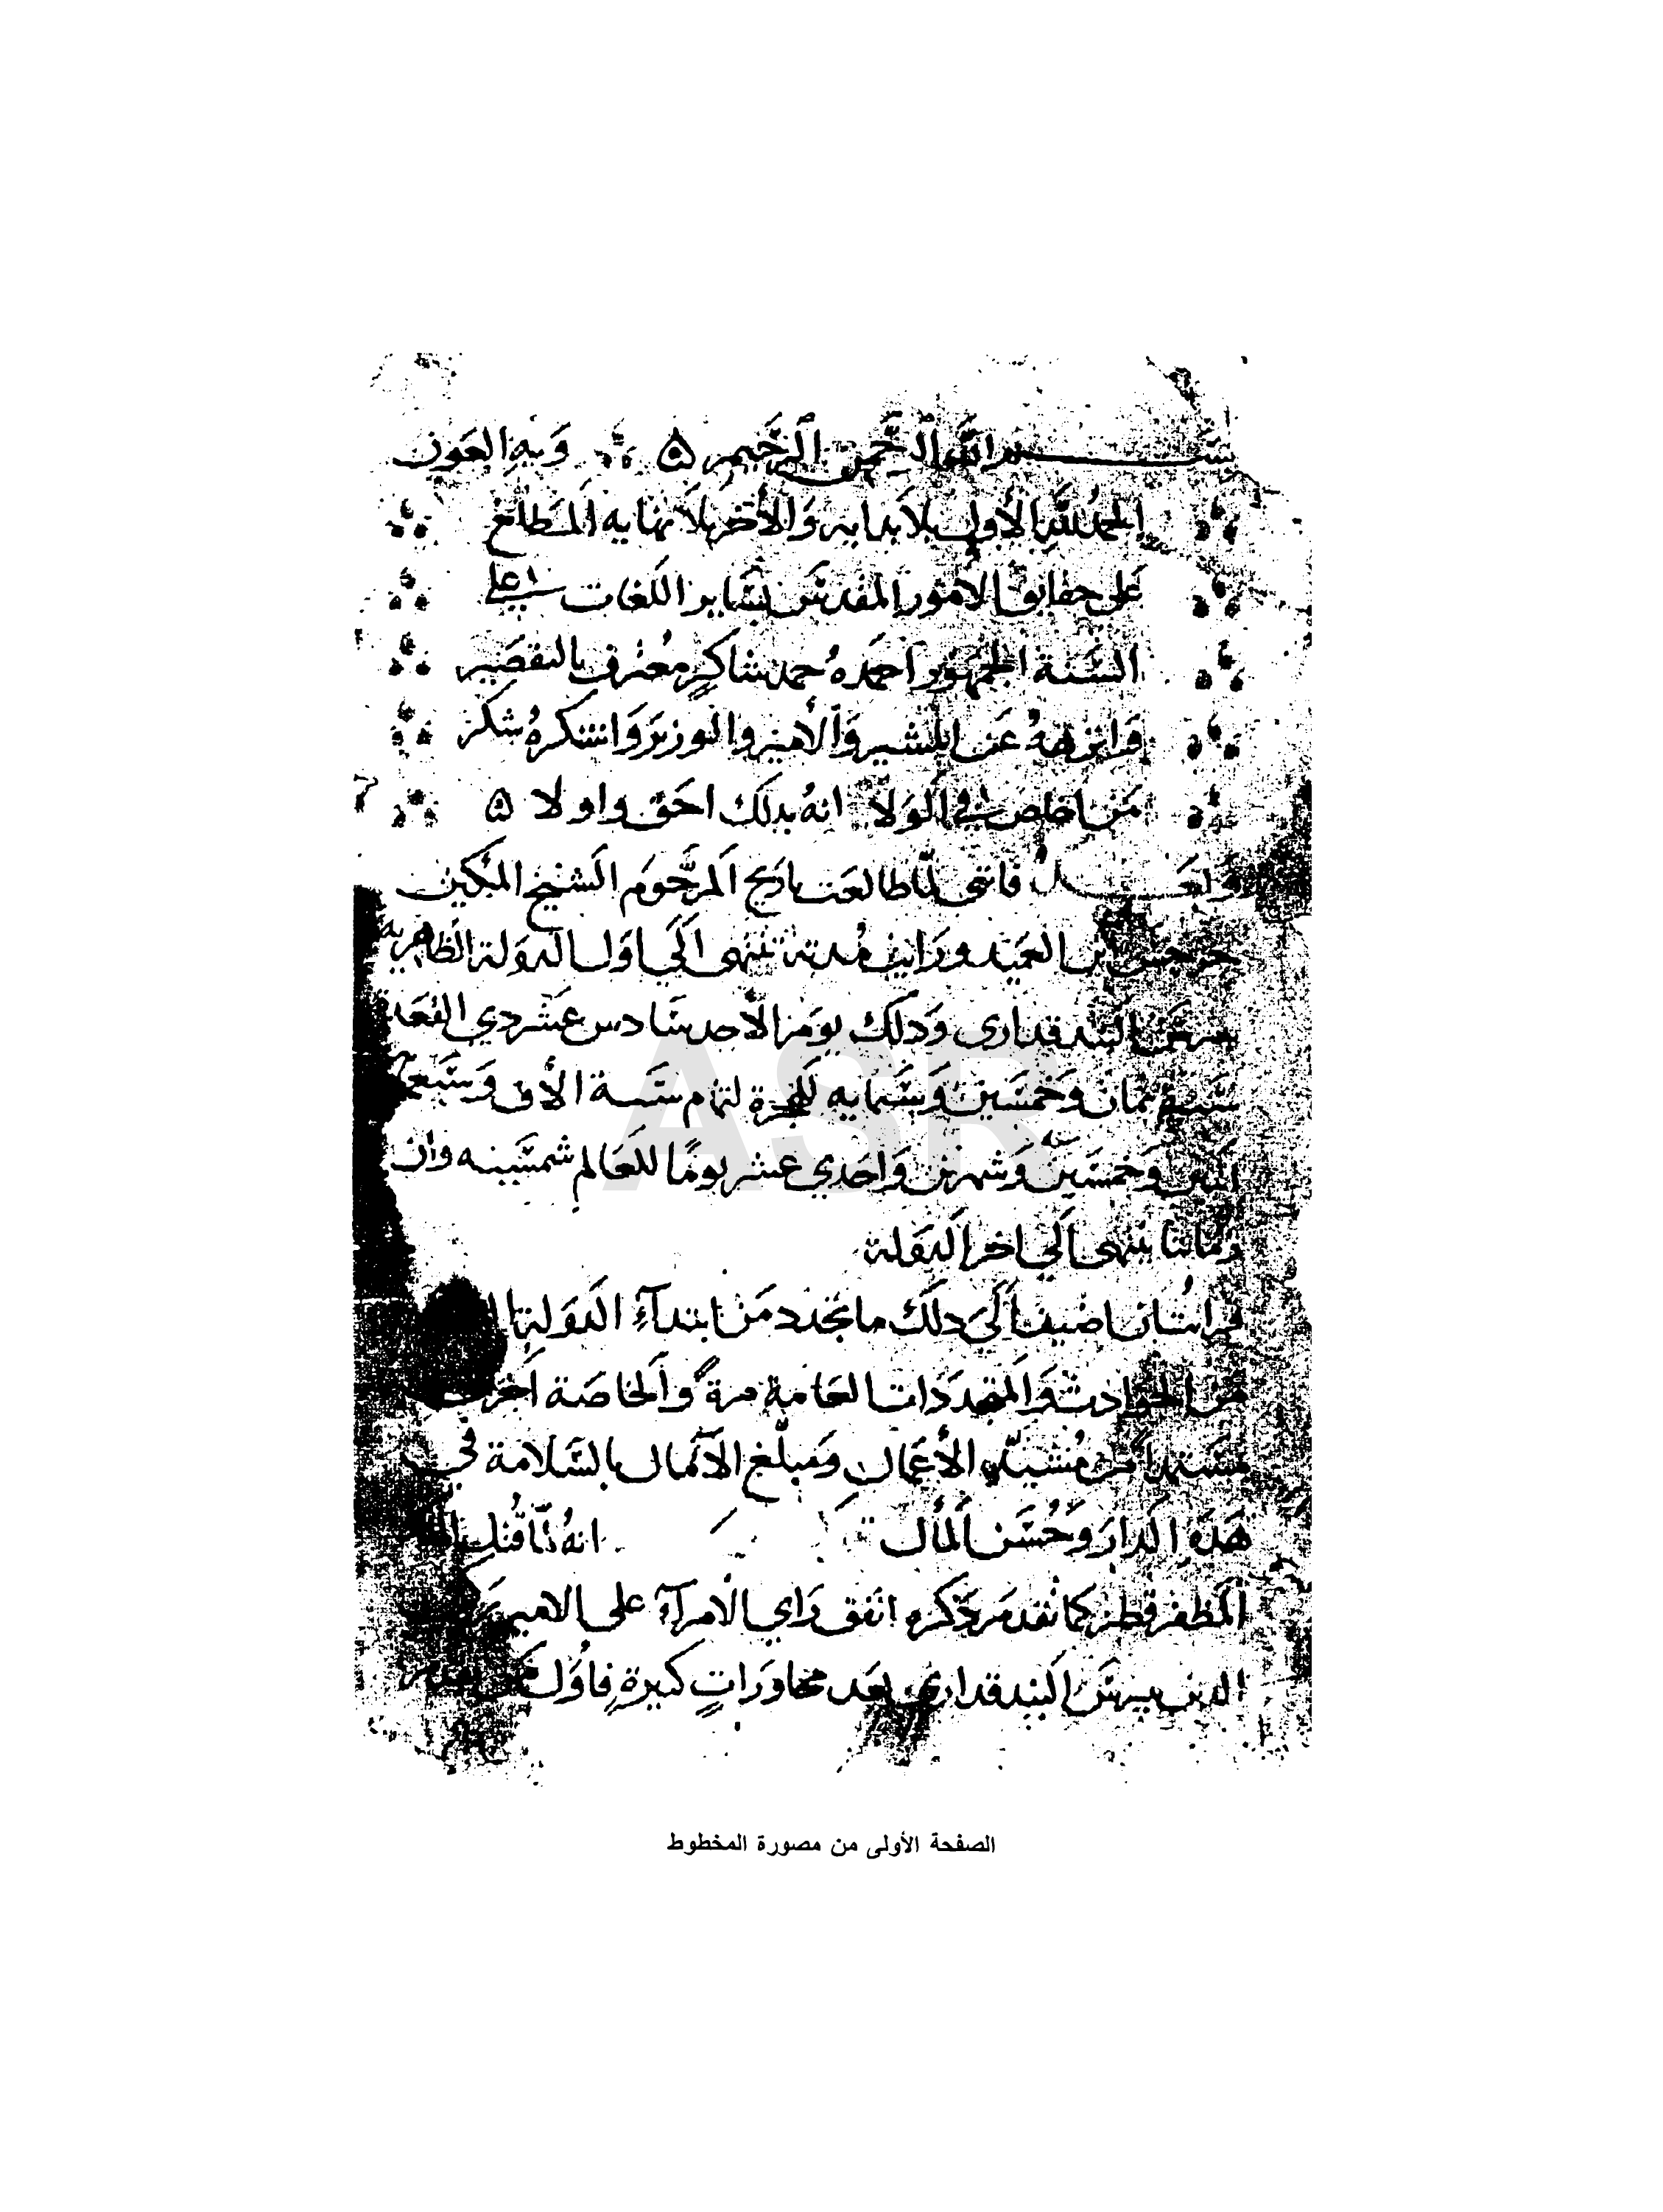 بسم الله الرحمن الرحيم ۞ وبه العون
الحمد لله الأول بلا بدايه والأخر بلا نهايه المطلع
على حقايق الأمور المقدس بساير اللغات على
السنة الجمهور احمده حمد شاكرٍ معترف بالتقصير
وانزهه عن المشير والأمير والوزير واشكره شكر
من اخلص في الولا انه بدلك احق واولا ۞
وبعد فانني لما طالعت تاريخ المرحوم الشيخ المكين
جرجس ابن العميد ورايت مدته تنتهى الي اول الدولة الظاهريه
بيبرس البندقداري ودلك يوم الأحد سادس عشر دي القعده
سنة ثمان وخمسين وستمايه للهجرة لتمام ستة الأف وسبعمايه
اثنين وخمسين وشهرين واحدي عشر يومًا للعالم شمسيه وان
زماننا ينتهى الي اخر الدولة
فرايت ان اضيف الي دلك ما تجدد من ابتدآء الدولة
من الحوادث والمتجددات العامة مرة والخاصة اخرى
مستمدا من الأعمال ومبلغ الآمال بالسلامة في
هده الدار وحسن المأل انه لما قتل
المظفر قطز كما تقدم ذكره اتفق راي الامرآء على الامير
الدين بيبرس البندقداري بعد محاوراتٍ كثيرةٍ فاول من
ASR
الصفحة الأولى من مصورة المخطوط